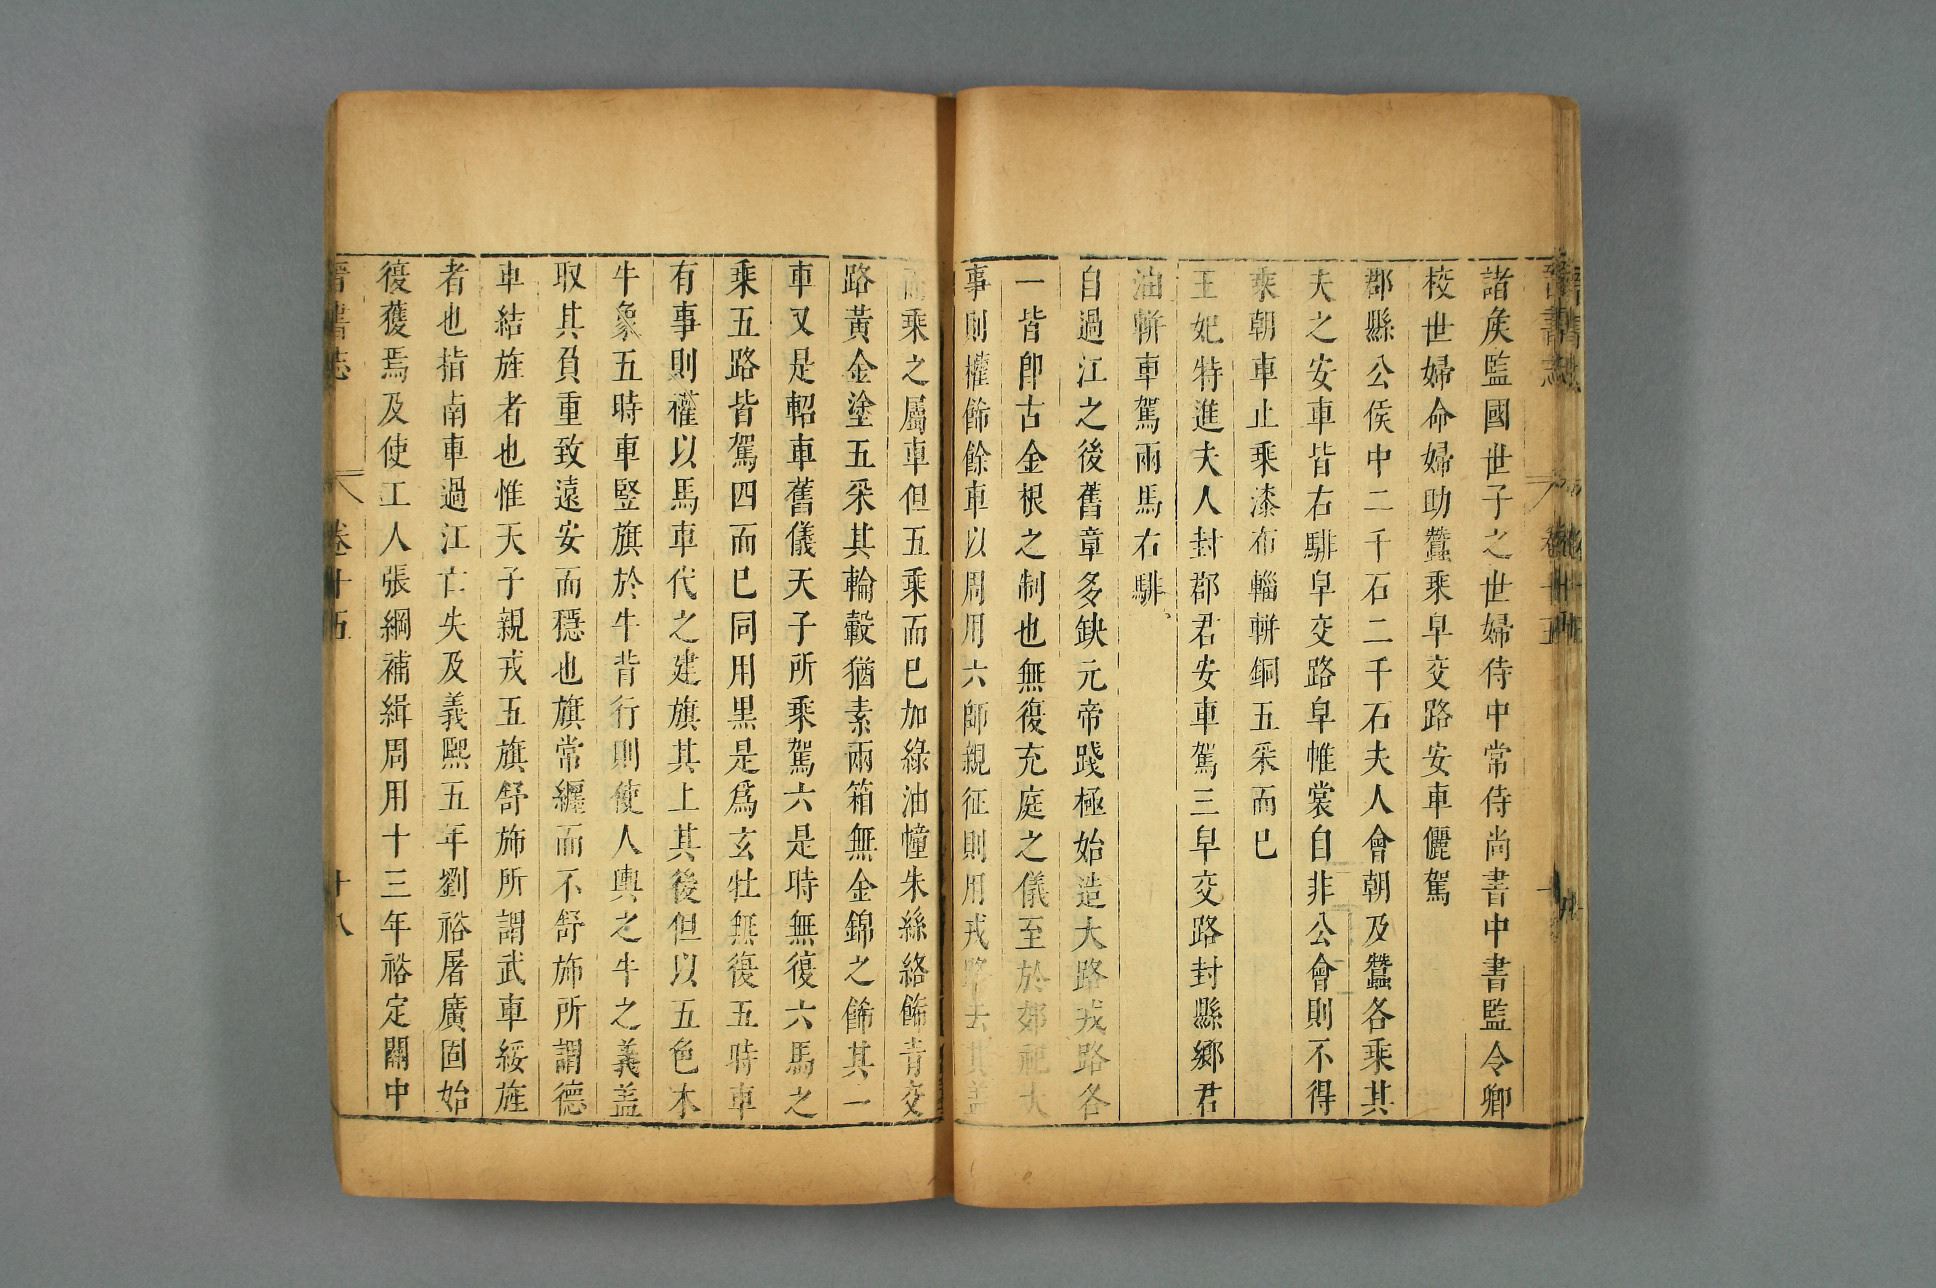 晉書志 卷十五
諸矦監國世子之世婦侍中常侍尚書中書監令卿
校世婦命婦助蠶乘皁交路安車儷駕
郡縣公侯中二千石二千石夫人會朝及蠶各乘其
夫之安車皆右騑皁交路皁帷裳自非公會則不得
乘朝車止乘漆布輜軿銅五采而已
王妃特進夫人封郡君安車駕三皁交路封縣鄉君
油軿車駕兩馬右騑
自過江之後舊章多缺元帝踐極始造大路戎路各
一皆卽古金根之制也無復充庭之儀至於郊祀大
事則權飾餘車以周用六師親征則用戎路去其蓋
而乘之屬車但五乘而已加綠油幢朱絲絡飾青交
路黃金塗五采其輪轂猶素兩箱無金錦之飾其一
車又是軺車舊儀天子所乘駕六是時無復六馬之
乘五路皆駕四而已同用黑是爲玄牡無復五時車
有事則權以馬車代之建旗其上其後但以五色木
牛象五時車竪旗於牛背行則使人輿之牛之義蓋
取其負重致遠安而穩也旗常纒而不舒斾所謂德
車結旌者也惟天子親戎五旗舒斾所謂武車綏旌
者也指南車過江亡失及義熙五年劉裕屠廣固始
復獲焉及使工人張綱補緝周用十三年裕定關中
晉書志 卷十五 十八